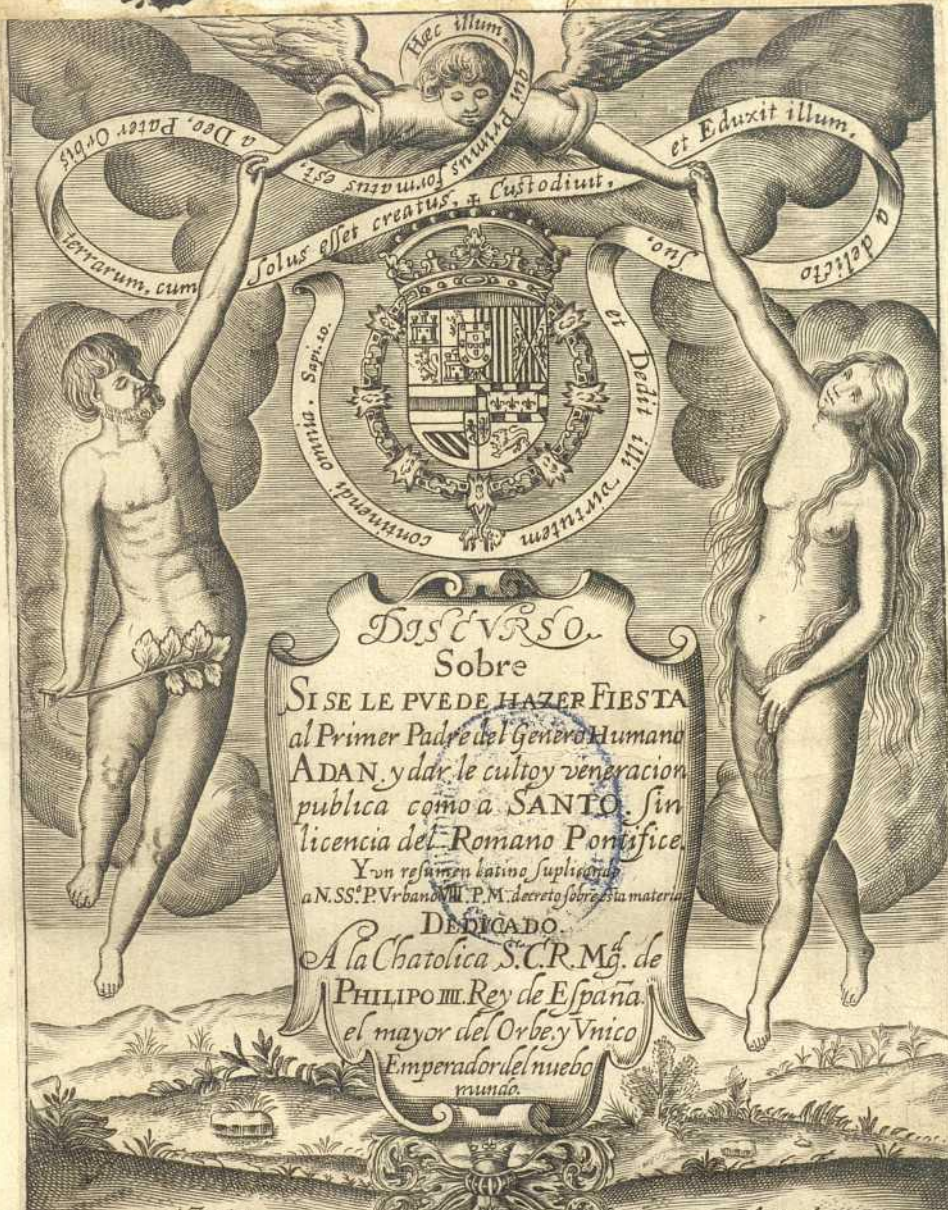 Hæc illum,
qui Primus formatus est,
a Deo, Pater Orbis
terrarum, cum
solus esset creatus, + Custodiuit,
et Eduxit illum,
a delicto
suo,
et Dedit illi virtutem
continendi omnia. Sapi. 10.
DISCVRSO
Sobre
SI SE LE PVEDE HAZER FIESTA
al Primer Padre del Genero Humano
ADAN, y dar le culto y veneracion
publica como a SANTO, sin
licencia del Romano Pontifice.
Y vn resumen latino suplicando
a N. SS.º P. Vrbano VIII. P. M. decreto sobre esta materia
DEDICADO.
A la Chatolica S. C. R. Mg.d de
PHILIPO IIII. Rey de España.
el mayor del Orbe, y Vnico
Emperador del nuebo
mundo.